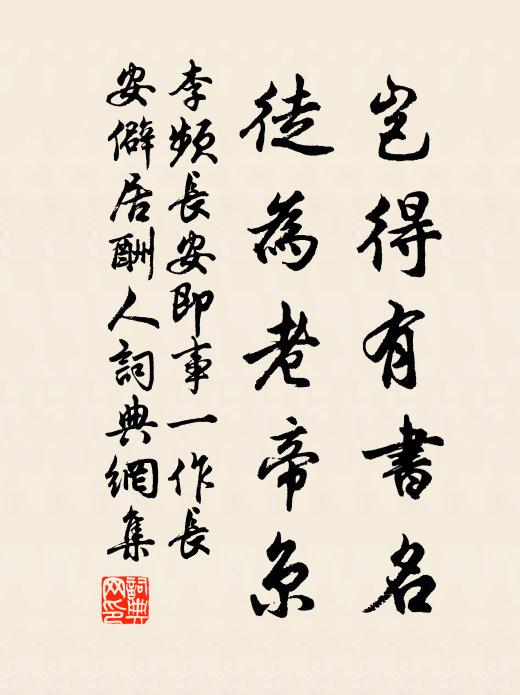 豈得有書名
徒為老帝京
李頻長安即事一作長
安僻居酬人詞典網集
詞典網印